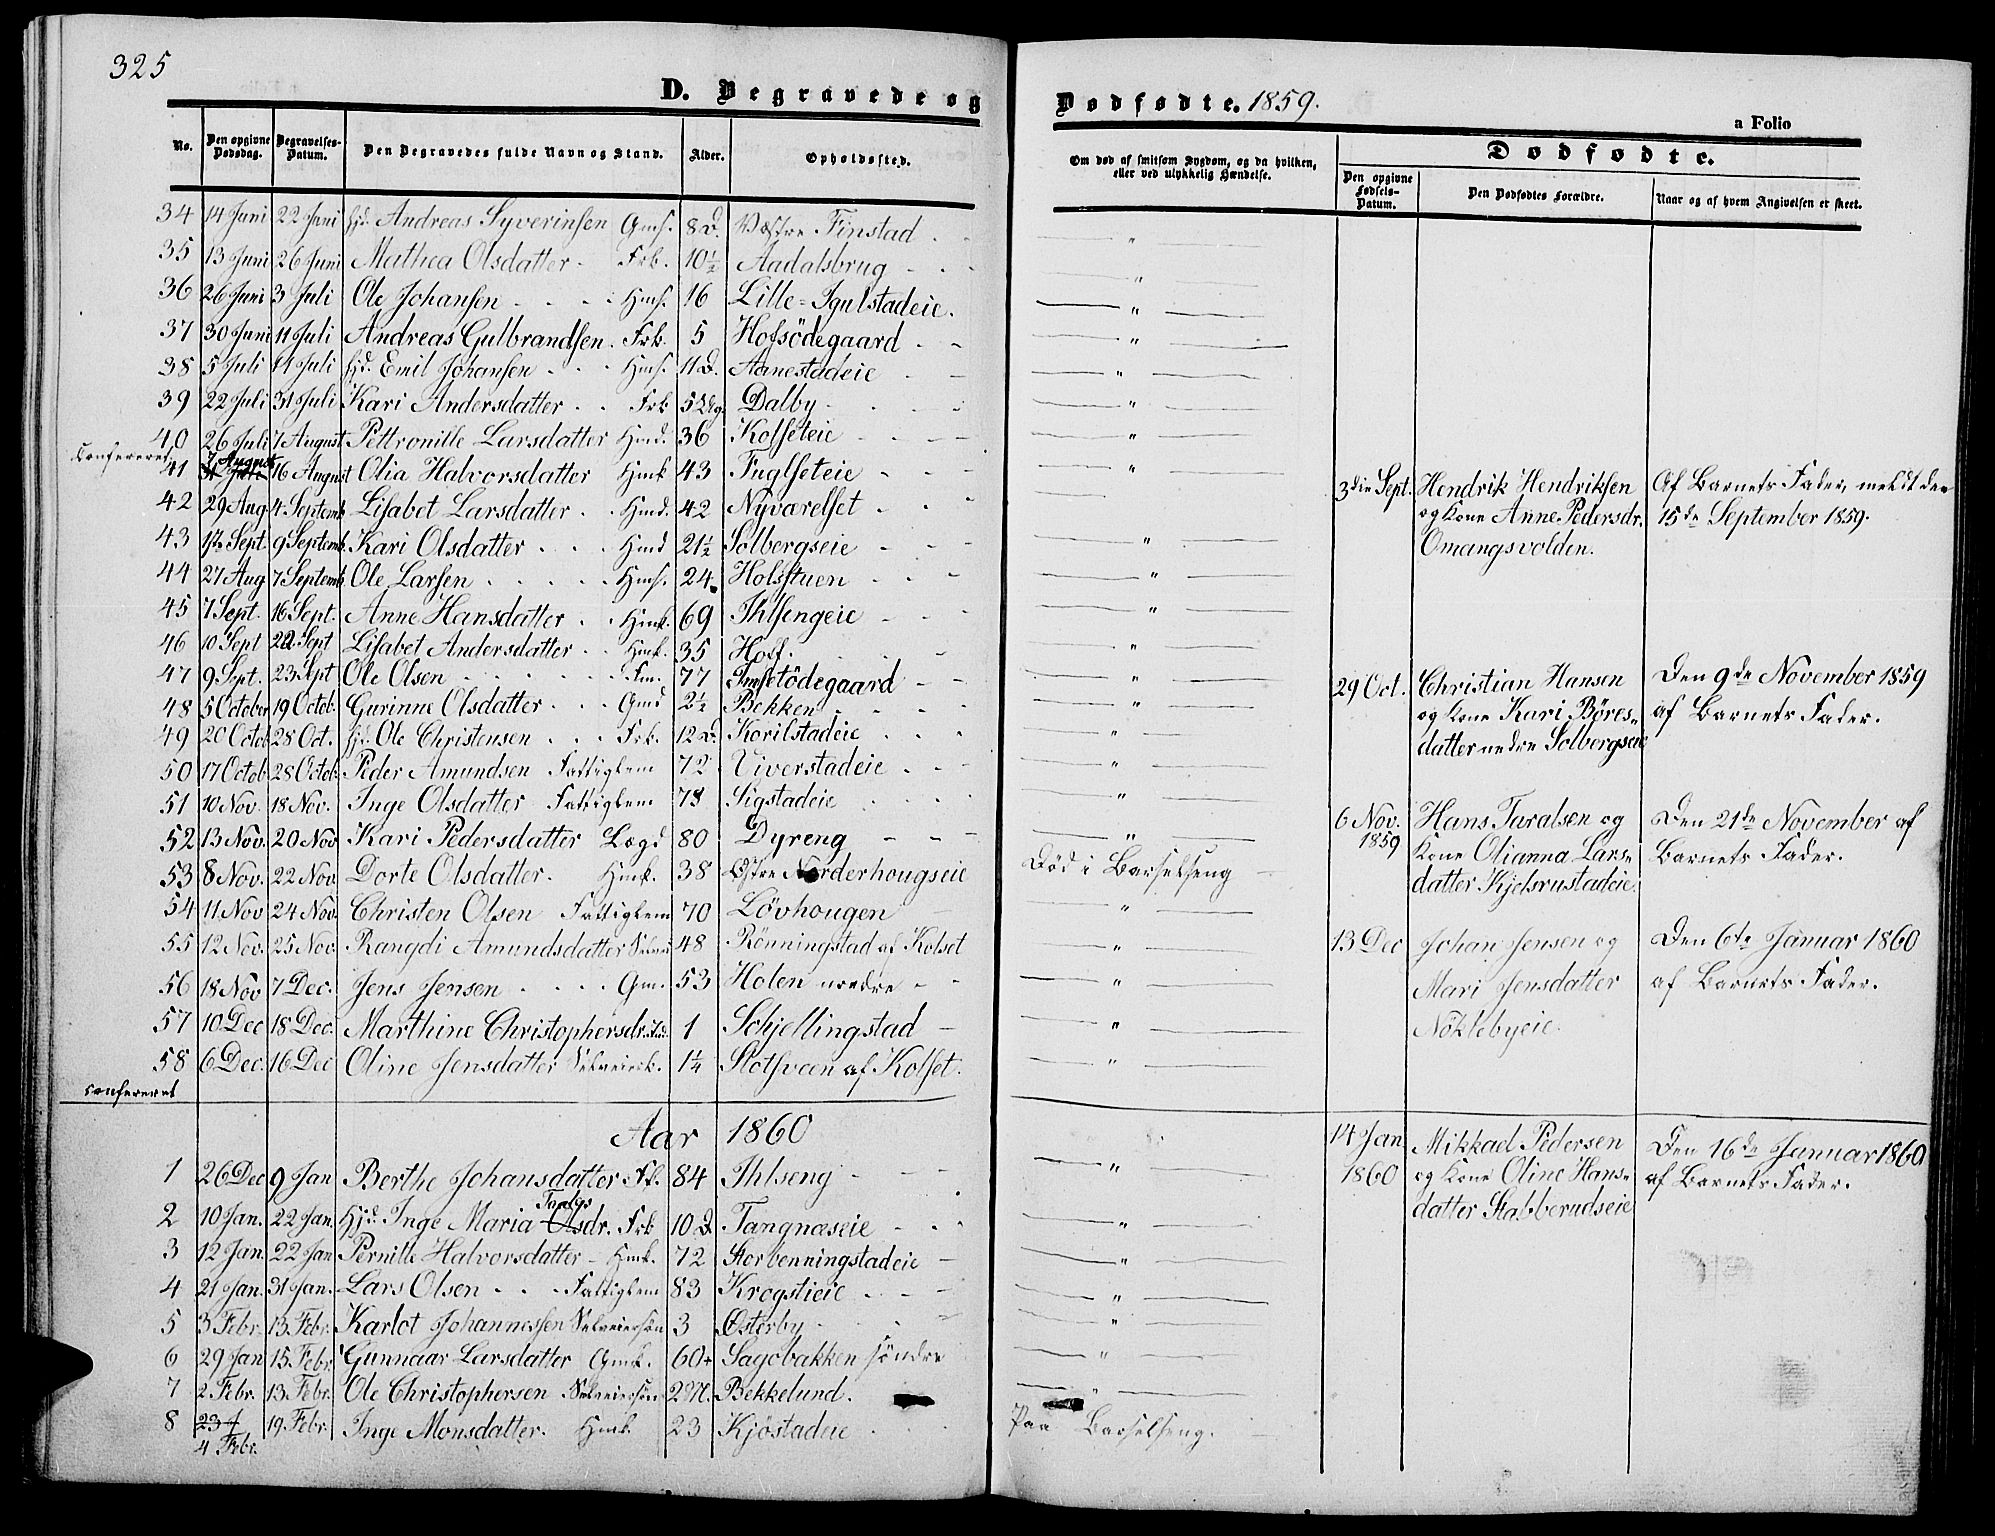 325
D. Begravede og Dødfødte. 1859.
a Folio
No. Den opgivne Dødsdag. Begravelses-Datum. Den Begravedes fulde Navn og Stand. Alder. Opholdssted.
Om død af smitsom Sygdom, og da hvilken, eller ved ulykkelig Hændelse.
Dødfødte.
Den opgivne Fødsels-Datum. Den Dødfødtes Forældre. Naar og af hvem Angivelsen er skeet.
34 14 Juni 22 Juni hjd. Andreas Syverinsen Gms. 8 D. Væstre Finstad
35 13 Juni 26 Juni Mathea Olsdatter Frk. 10½ Aadalsbrug
36 26 Juni 3 Juli Ole Johansen Hms. 16 Lille-Igulstadeie.
37 30 Juni 11 Juli Andreas Gulbrandsen. Frk. 5 Hofsödegaard
38 5 Juli 11 Juli hjd. Emil Johansen Hms. 11 D. Aanestadeie
39 22 Juli 31 Juli Kari Andersdatter Frk 5 Dalby
40 26 Juli 7 August Pettronille Larsdatter Hmd. 36 Kolseteie
confereret
41 7 August 16 August Olia Halvorsdatter Hmk 43 Fuglseteie
42 29 Aug 4 Septemb. Lisabet Larsdatter Hmd. 42 Nyværelset
43 1ste Sept. 9 Septemb. Kari Olsdatter Hmd 21½ Solbergseie
44 27 Aug 7 Septemb. Ole Larsen Hms. 24 Holsstuen
45 7 Sept. 16 Sept. Anne Hansdatter Hmk. 69 Ihlsengeie
46 10 Sept 22 Sept Lisabet Andersdatter Hmk. 35 Hof.
47 9 Sept. 23 Sept Ole Olsen Fm. 77 Imsetödegaard
48 5 October 19 Octob. Gurinne Olsdatter Gmd 2½ Bekken
49 20 Octob 28 Oct. hjd. Ole Christensen Frk. 12 D. Korilstadeie
50 17 Octob 28 Octob. Peder Amundsen Fattiglem 72 Tiverstadeie
51 10 Nov. 18 Nov. Inge Olsdatter Fattiglem 73 Sigstadeie
52 13 Nov. 20 Nov Kari Pedersdatter Lægd 80 Dyreng
53 8 Nov. 22 Nov Dorte Olsdatter. Hmk. 38 Östre Norderhougseie Död i Barselseng
54 11 Nov 24 Nov. Christen Olsen Fattiglem 70 Lövhougen
55 12 Nov. 25 Nov. Rangdi Amundsdatter 48 Rönningstad af Kolset
56 18 Nov 7 Dec. Jens Jensen Gm. 53 Holen nedre
57 10 Dec 18 Dec. Marthine Christophersdr. 1 Schjellingstad
58 6 Dec. 16 Dec Oline Jensdatter Selveierk. 1¼ Slotsveen af Kolset.
confereret
3die Sept. Hendrik Hendriksen Af Barnets Fader, meldt den
og Kone Anne Pedersdr. 15de September 1859.
Omangsvolden.
29 Oct. Christian Hansen Den 9de November 1859
og Kone Kari Böres- af Barnets Fader.
datter nedre Solbergseie
6 Nov. 1859 Hans Taralsen og Den 21de November af
Kone Olianna Lars- Barnets Fader.
datter Kjelsrustadeie.
13 Dec Johan Jensen og Den 6te Januar 1860
Mari Jensdatter af Barnets Fader.
Nöklebyeie.
Aar 1860
1 26 Dec 9 Jan Berthe Johansdatter 84 Ihlseng
2 10 Jan. 22 Jan. Hjd. Inge Maria Olsdr. Frk 10 D. Tangnæseie
3 12 Jan. 22 Jan Pernille Halvorsdatter Hmk. 72 Storbenningstadeie
4 21 Jan. 31 Jan. Lars Olsen Fattiglem 83 Krogstieie
5 3 Febr. 13 Febr. Karlot Johannessen Selveiersön 3 Österby
6 29 Jan 15 Febr. Gunnaar Larsdatter Gmk. 60 Sagobakken söndre
7 2 Febr. 13 Febr. Ole Christophersen Selveiersön 2 M. Bekkelund.
8 23 J 4 Febr. 19 Febr. Inge Monsdatter. Hmk 23 Kjöstadeie Paa Barselseng.
14 Jan 1860 Mikkael Pedersen Den 16de Januar 1860
og Kone Oline Hans- af Barnets Fader.
datter Stabberudseie